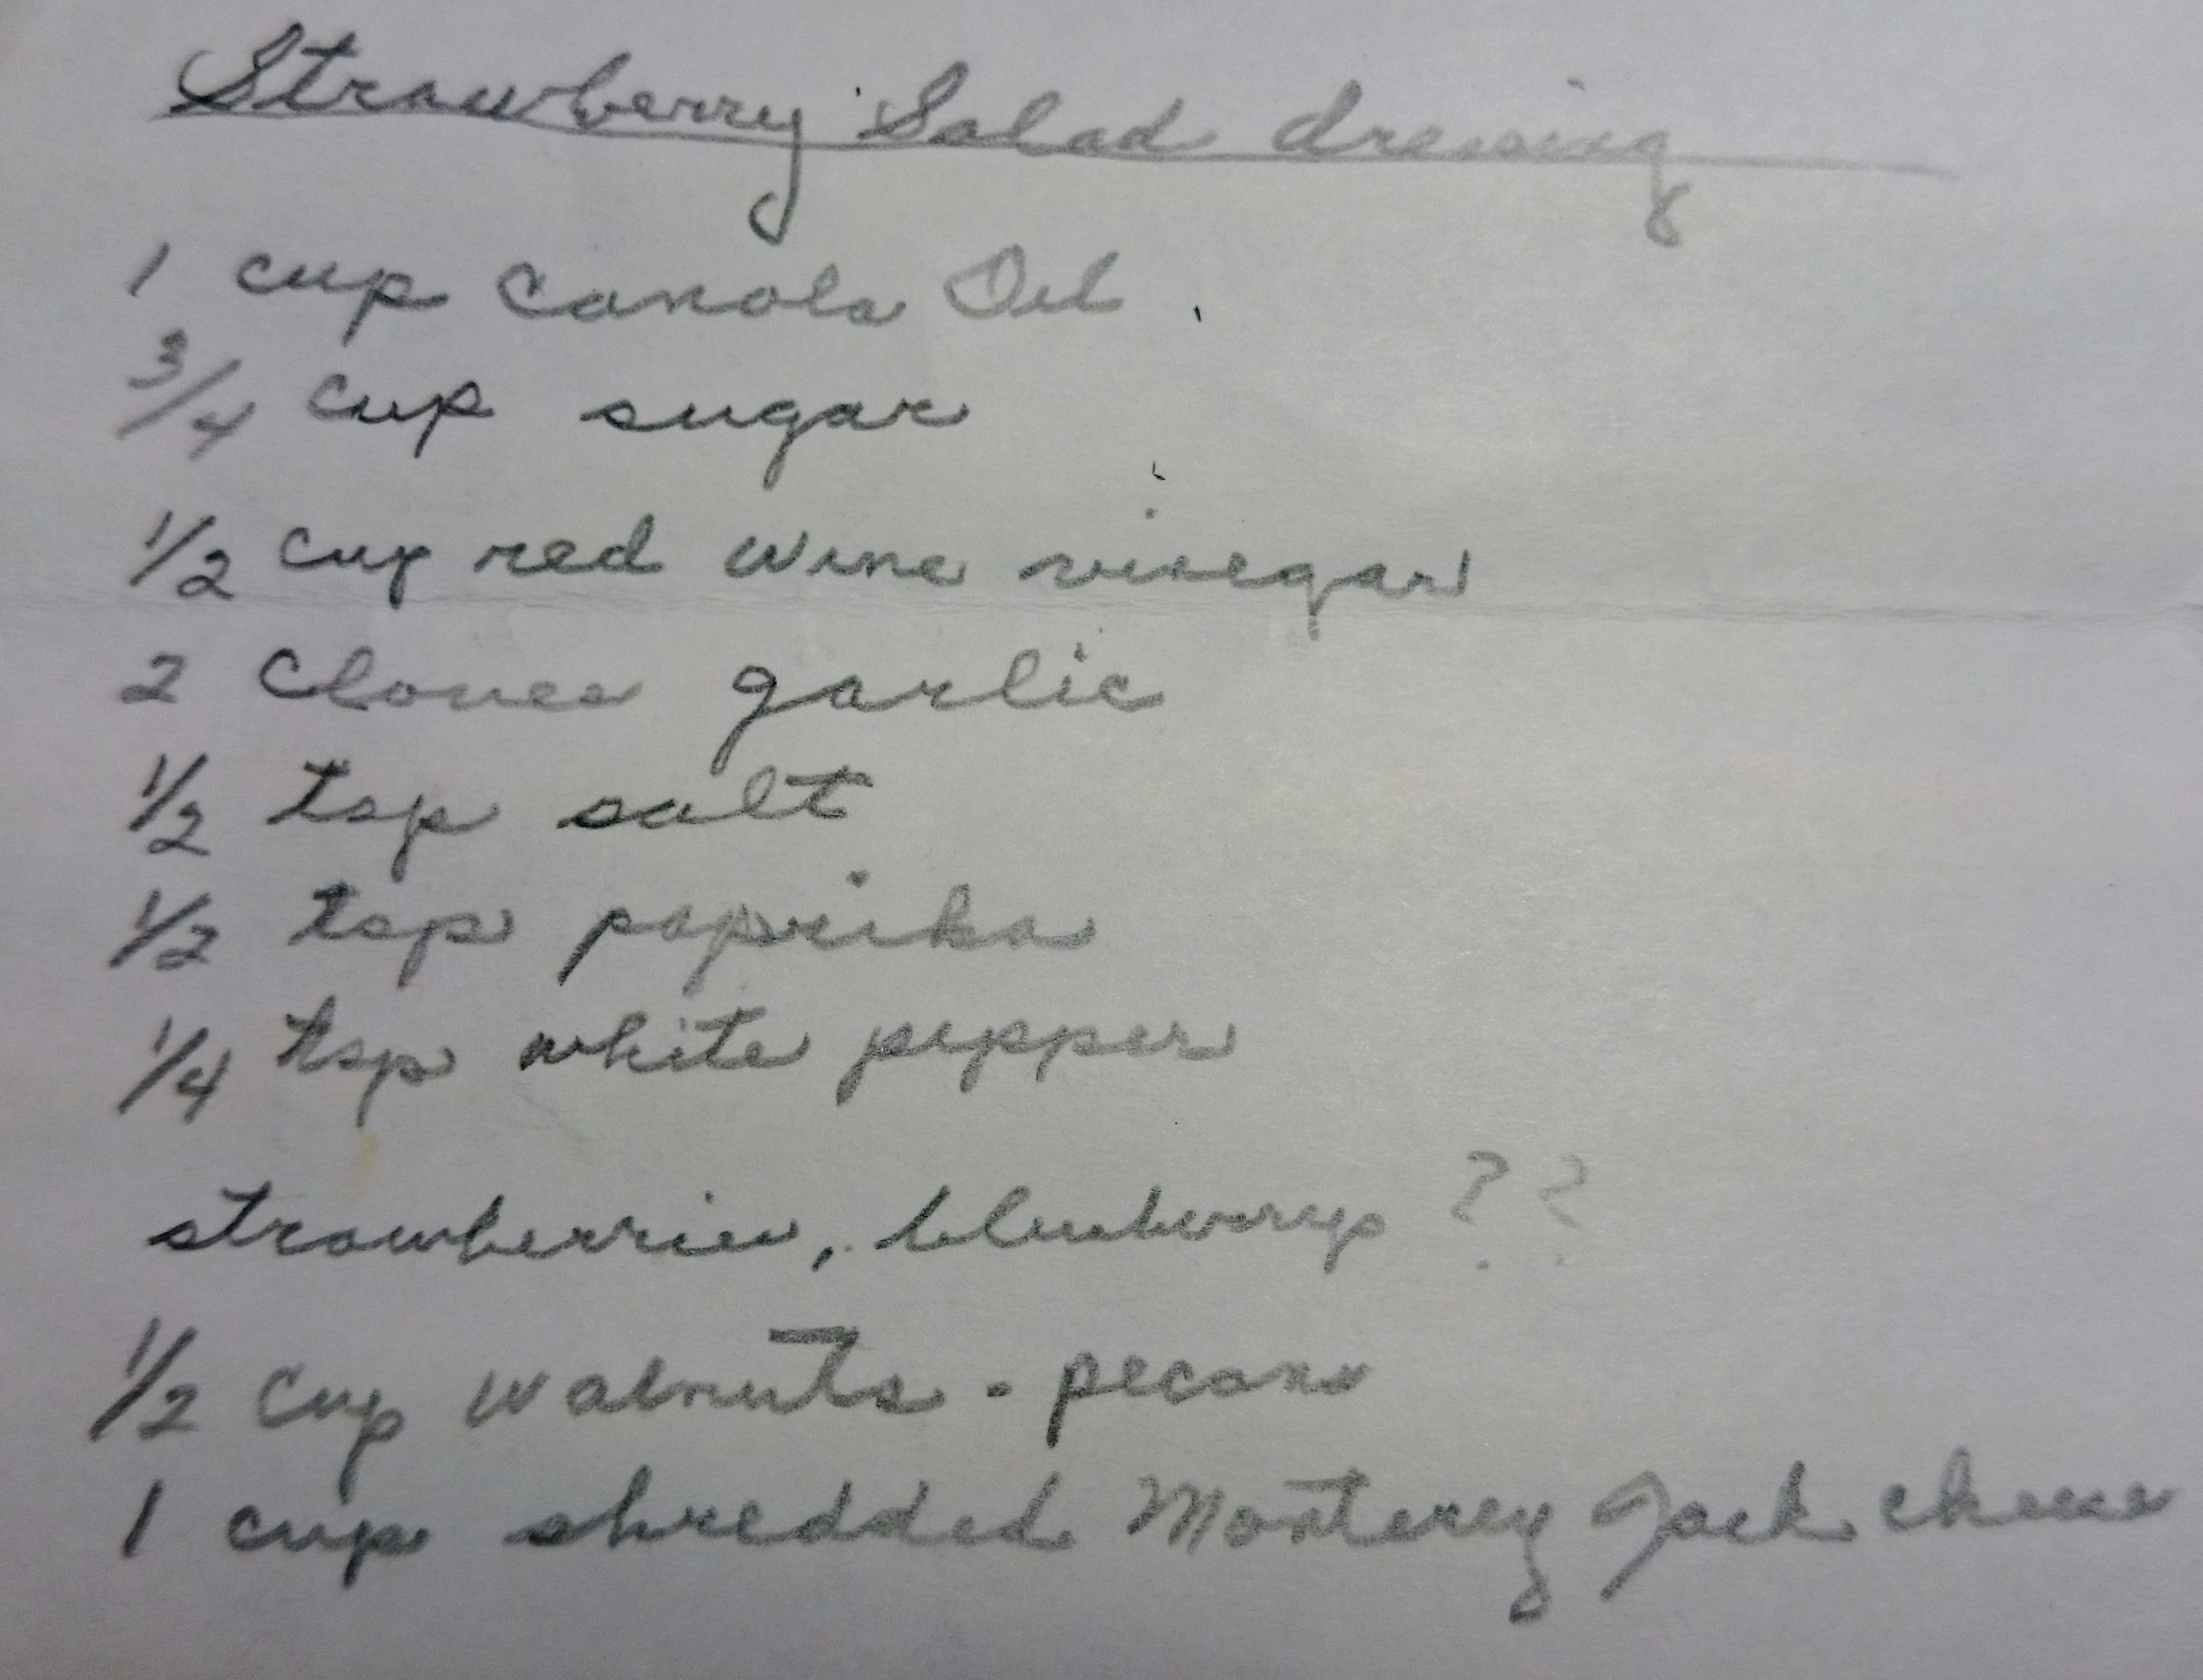 Strawberry Salad dressing
1 cup Canola Oil
3/4 cup sugar
1/2 cup red wine vinegar
2 cloves garlic
1/2 tsp salt
1/2 tsp paprika
1/4 tsp white pepper
strawberries, blueberrys ??
1/2 cup walnuts - pecans
1 cup shredded Monterey Jack cheese